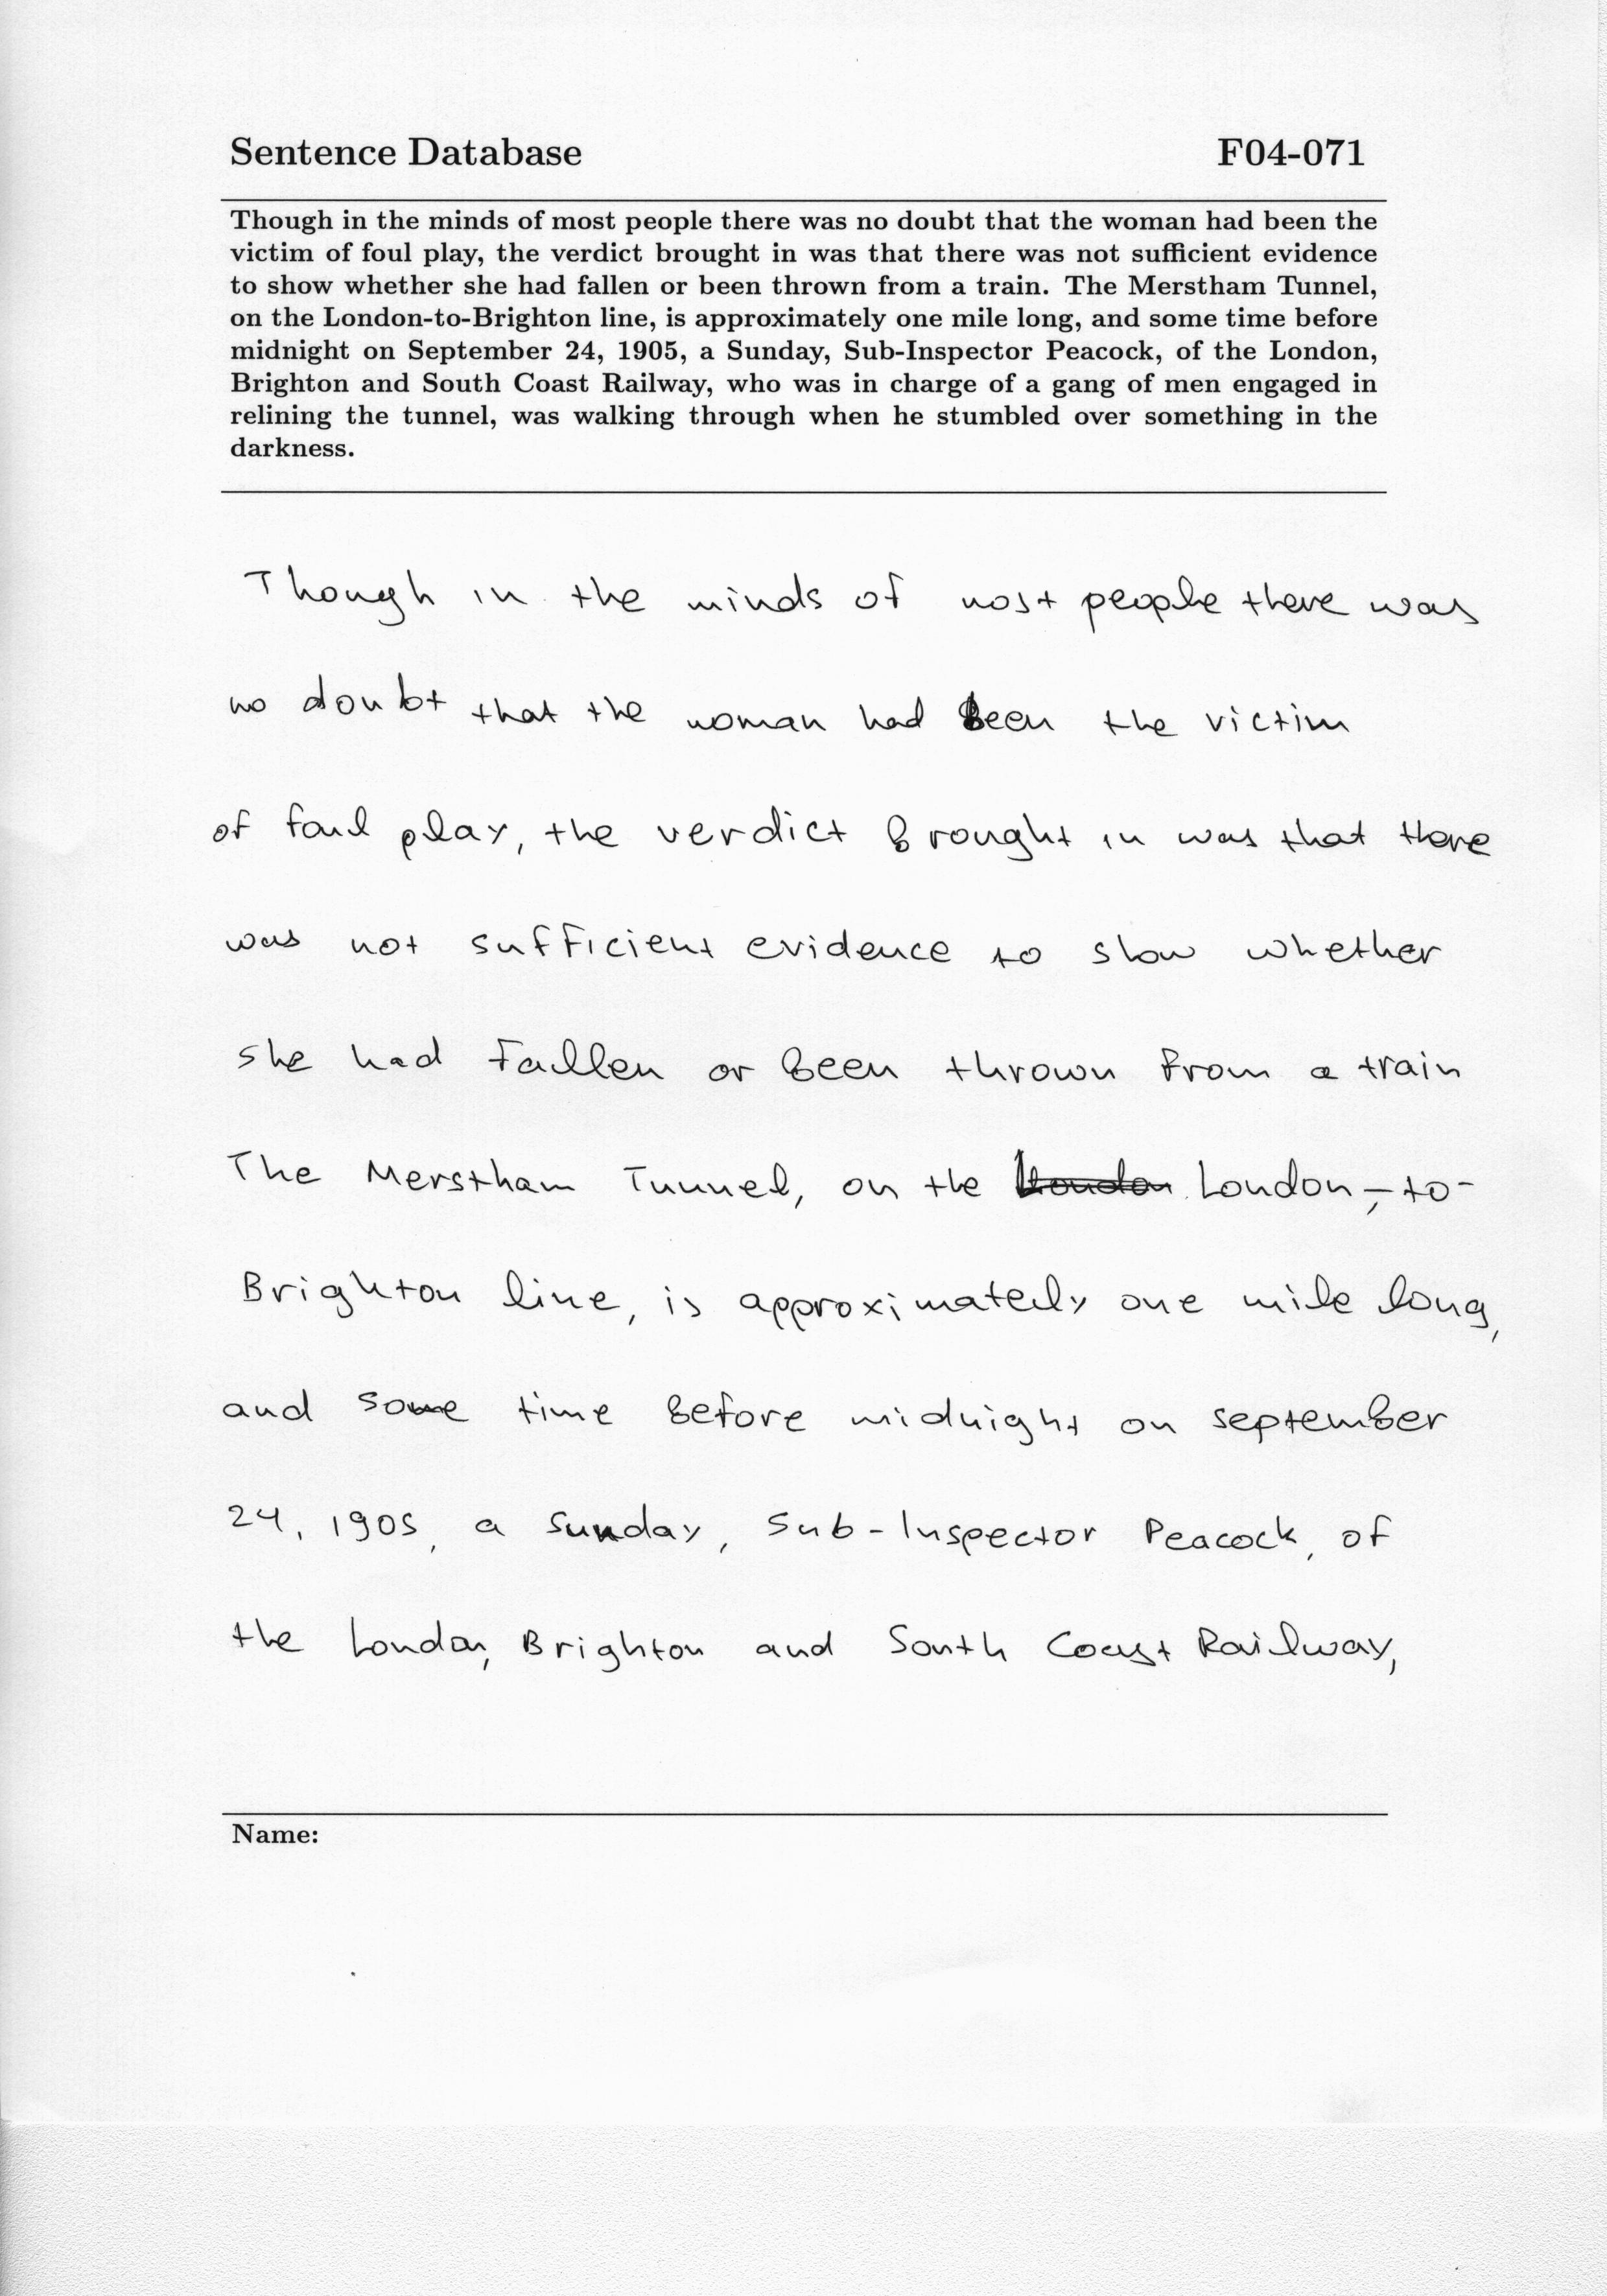 Sentence Database F04-071
Though in the minds of most people there was no doubt that the woman had been the
victim of foul play, the verdict brought in was that there was not sufficient evidence
to show whether she had fallen or been thrown from a train. The Merstham Tunnel,
on the London-to-Brighton line, is approximately one mile long, and some time before
midnight on September 24, 1905, a Sunday, Sub-Inspector Peacock, of the London,
Brighton and South Coast Railway, who was in charge of a gang of men engaged in
relining the tunnel, was walking through when he stumbled over something in the
darkness.
Though in the minds of most people there was
no doubt that the woman had been the victim
of foul play, the verdict brought in was that there
was not sufficient evidence to show whether
she had fallen or been thrown from a train
The Merstham Tunnel, on the London-,to-
Brighton line, is approximately one mile long,
and some time before midnight on september
24, 1905, a Sunday, Sub-Inspector Peacock, of
the London, Brighton and South Coast Railway,
Name: